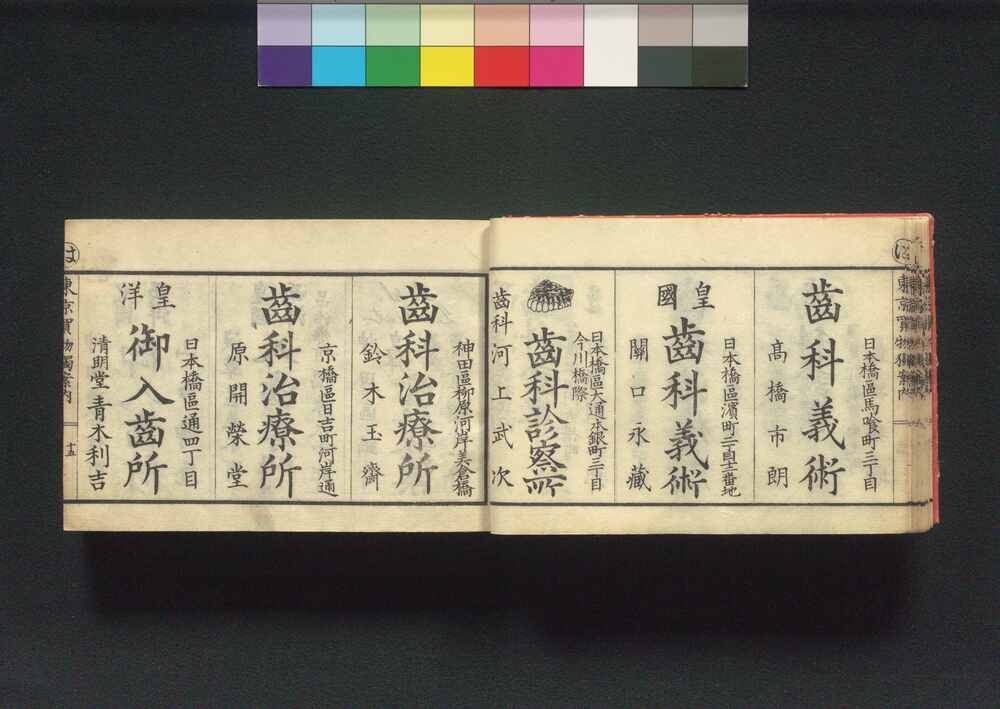 日本橋區馬喰町三丁目
齒科義術
高橋市朗
日本橋區濱町二丁目十二番地
皇國
齒科義術
關口永藏
日本橋區大通本銀町三丁目
今川橋際
齒科診察所
齒科 河上武次
神田區柳原河岸美倉橋
齒科治療所
鈴木玉齋
京橋區日吉町河岸通
齒科治療所
原開榮堂
日本橋區通四丁目
皇洋
御入齒所
清明堂 青木利吉
は
東京買物獨案內
十五